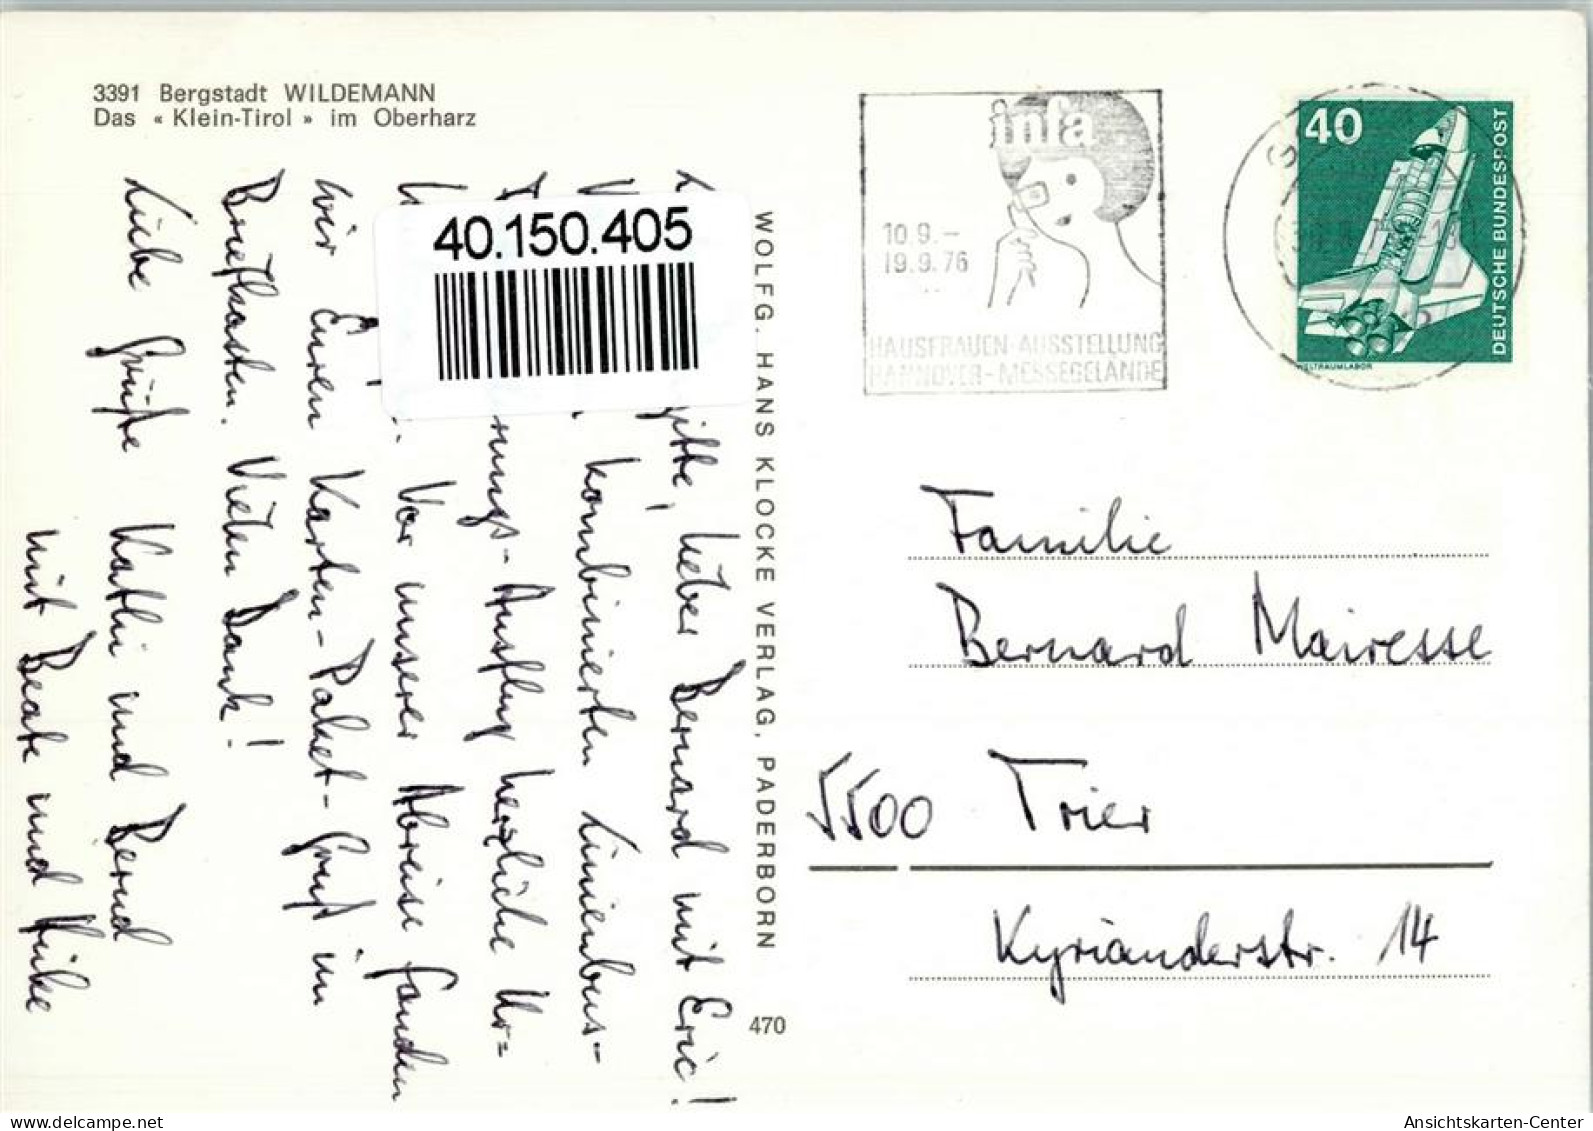 3391 Bergstadt WILDEMANN
Das « Klein-Tirol » im Oberharz
40.150.405
gitte, lieber Bernard mit Eric!
kombinierten Linienbus-
rungs-Ausflug herzliche Ur=
Vor unserer Abreise fanden
wir Euren Karten-Paket-Gruß im
Briefkasten. Vielen Dank!
Liebe Grüße Kathi und Bernd
mit Beate und Heike
WOLFG. HANS KLOCKE VERLAG, PADERBORN
470
infa
10.9.–
19.9.76
HAUSFRAUEN-AUSSTELLUNG
HANNOVER-MESSEGELÄNDE
40
DEUTSCHE BUNDESPOST
WELTRAUMLABOR
Familie
Bernard Mairesse
5500 Trier
Kyrianderstr. 14
Ansichtskarten-Center